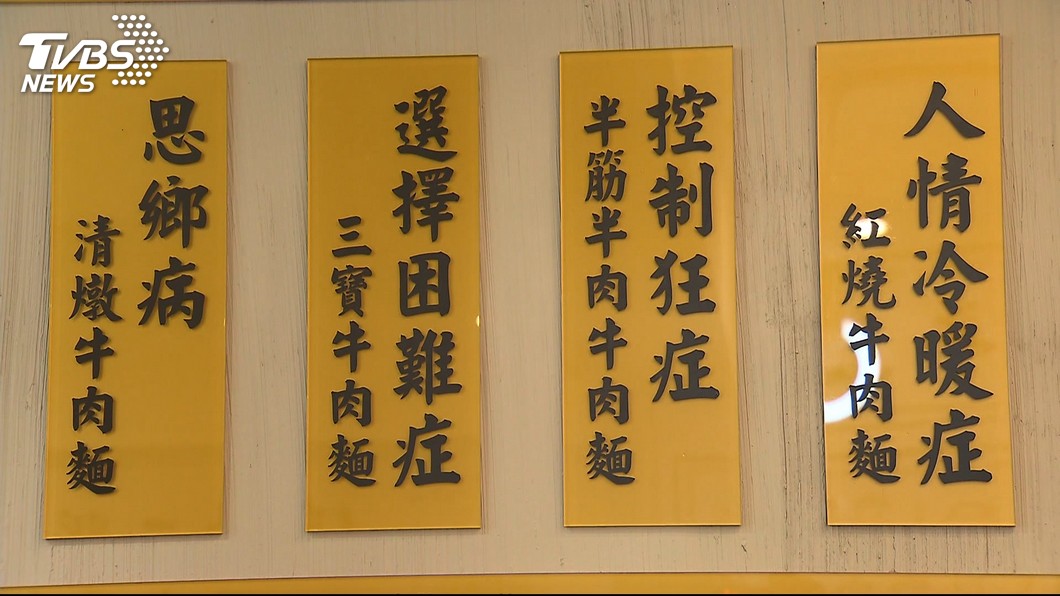 TVBS
NEWS
人情冷暖症
紅燒牛肉麵
控制狂症
半筋半肉牛肉麵
選擇困難症
三寶牛肉麵
思鄉病
清燉牛肉麵